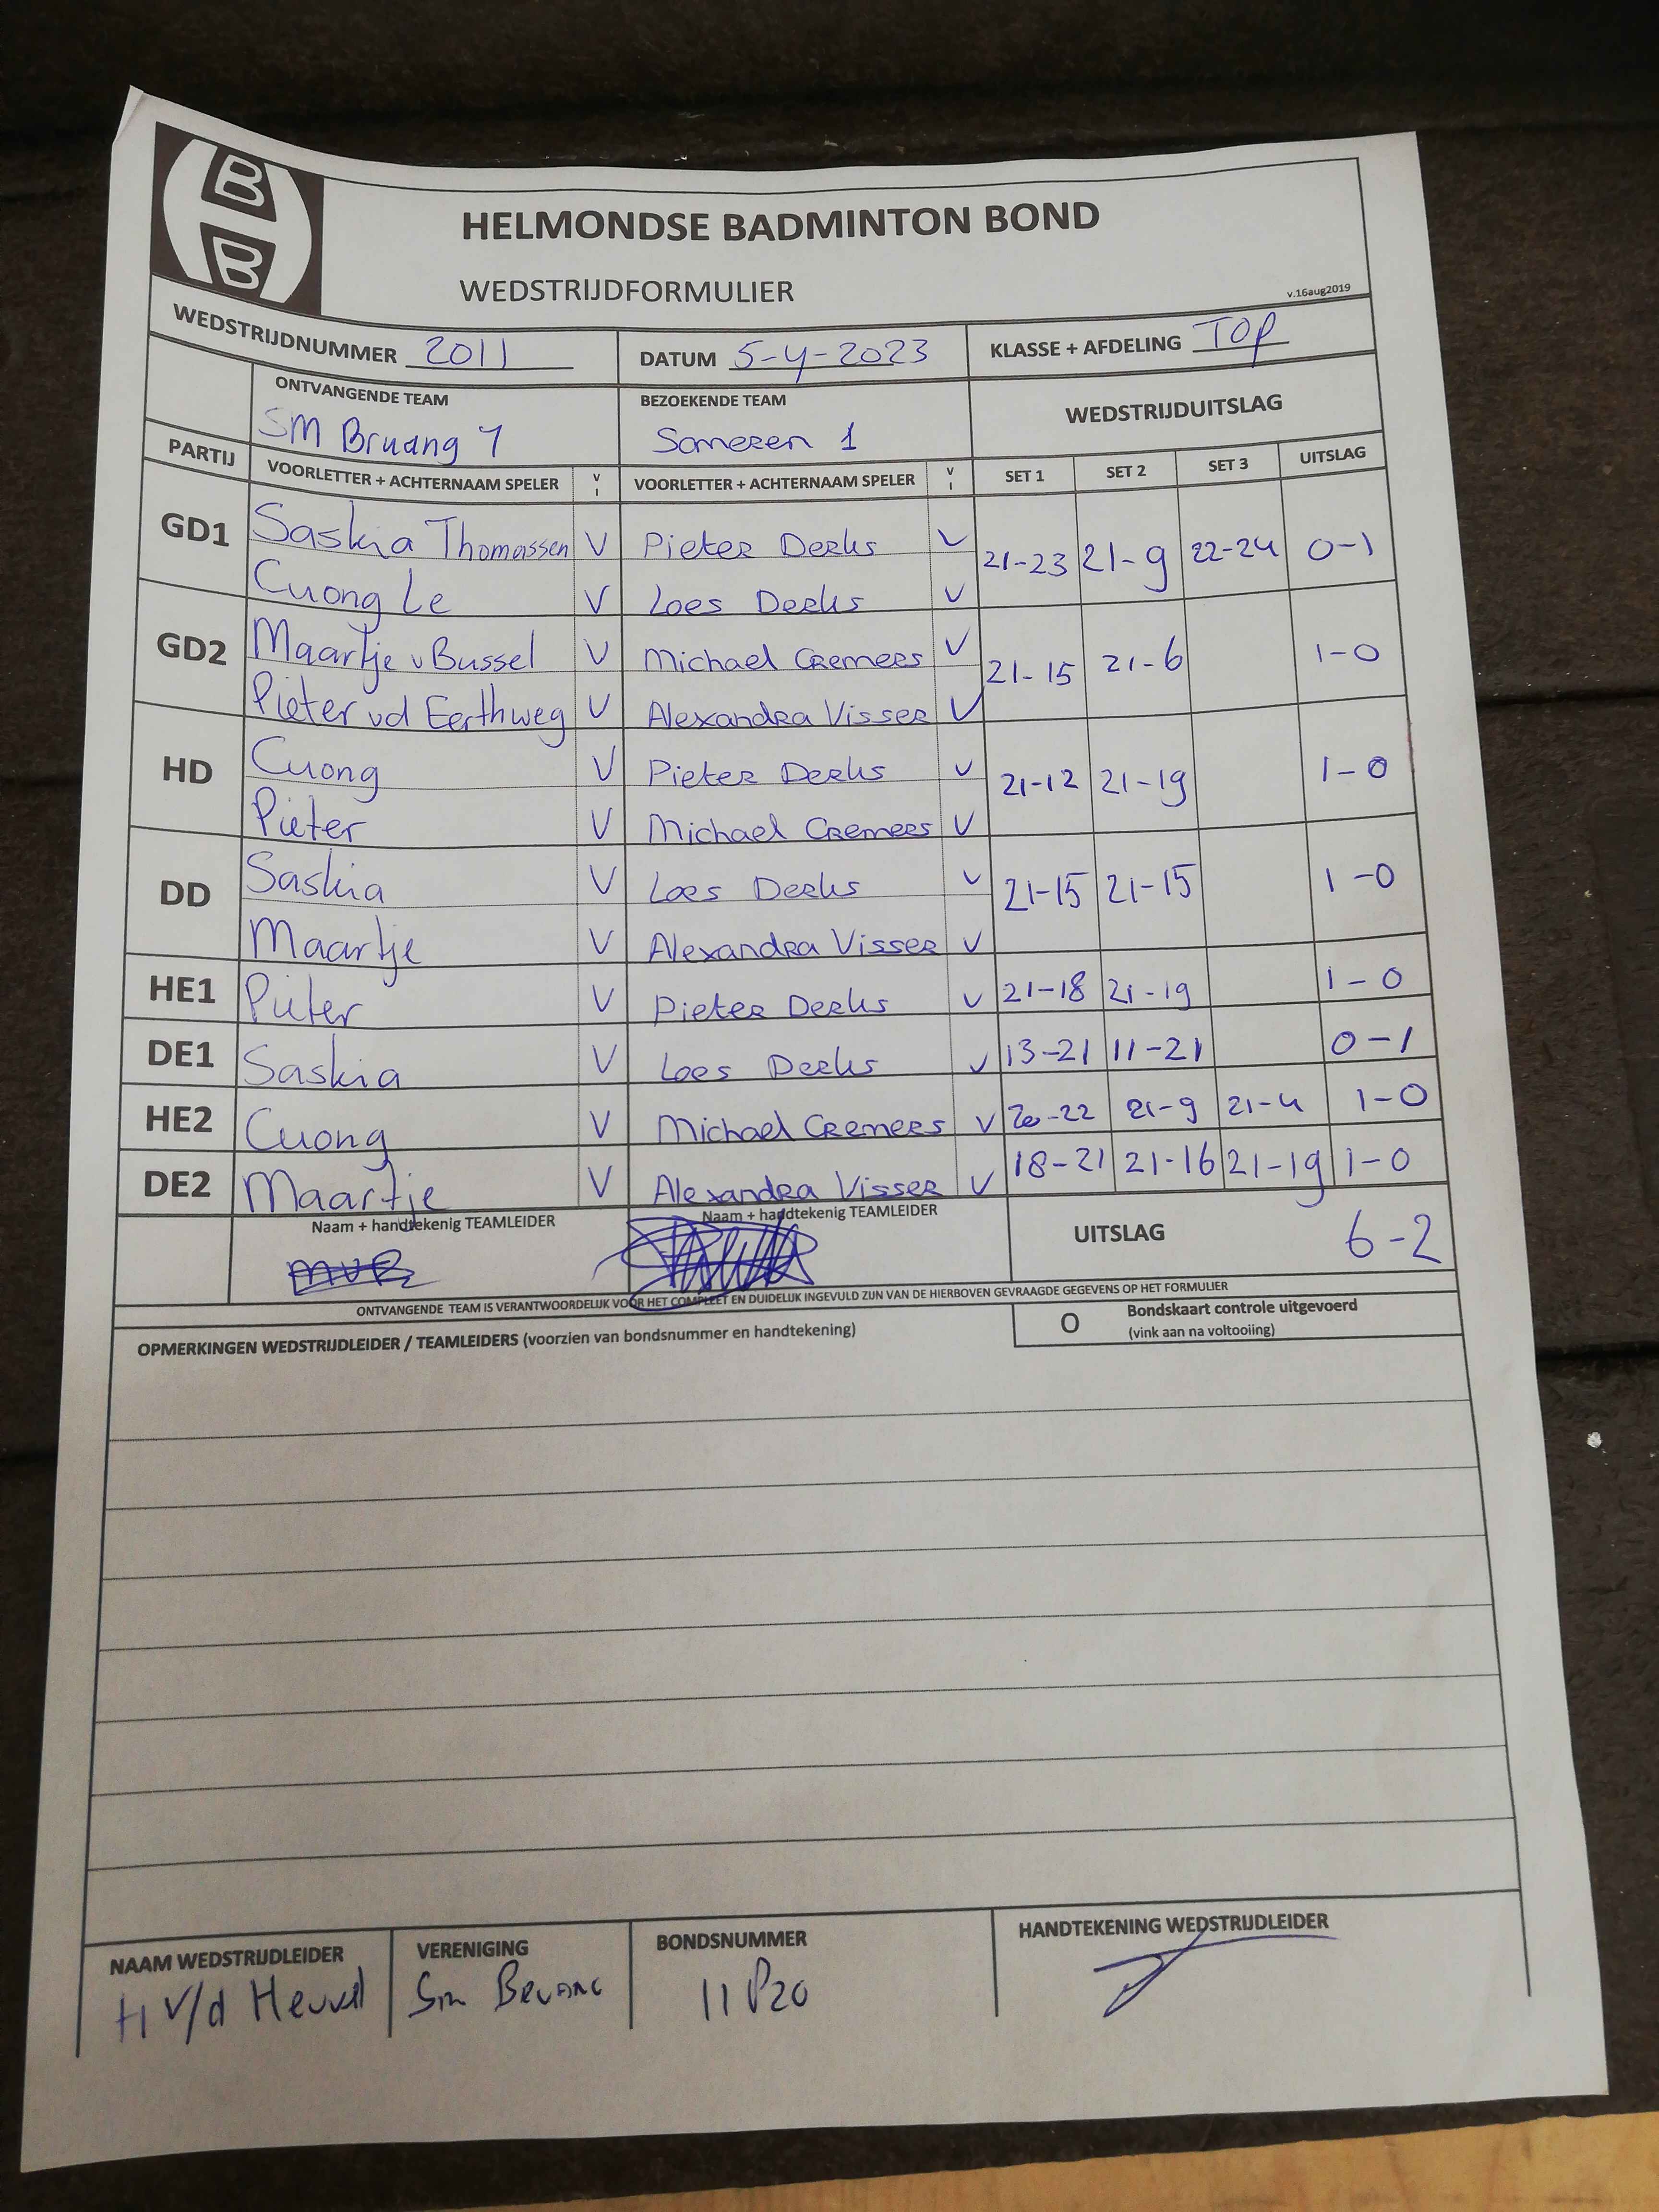 B
B
HELMONDSE BADMINTON BOND
WEDSTRIJDFORMULIER
v.16aug2019
WEDSTRIJDNUMMER 2011 DATUM 5-4-2023 KLASSE + AFDELING TOP
ONTVANGENDE TEAM BEZOEKENDE TEAM WEDSTRIJDUITSLAG
SM Bruang 1 Someren 1
PARTIJ VOORLETTER + ACHTERNAAM SPELER V I VOORLETTER + ACHTERNAAM SPELER V I SET 1 SET 2 SET 3 UITSLAG
GD1 Saskia Thomassen V Pieter Derks V 21-23 21-9 22-24 0-1
Cuong Le V Loes Derks V
GD2 Maartje v Bussel V Michael Cremers V 21-15 21-6 1-0
Pieter vd Eerthweg V Alexandra Visser V
HD Cuong V Pieter Derks V 21-12 21-19 1-0
Pieter V Michael Cremers V
DD Saskia V Loes Derks V 21-15 21-15 1-0
Maartje V Alexandra Visser V
HE1 Pieter V Pieter Derks V 21-18 21-19 1-0
DE1 Saskia V Loes Derks V 13-21 11-21 0-1
HE2 Cuong V Michael Cremers V 20-22 21-9 21-4 1-0
DE2 Maartje V Alexandra Visser V 18-21 21-16 21-19 1-0
Naam + handtekenig TEAMLEIDER Naam + handtekenig TEAMLEIDER UITSLAG 6-2
MvB
ONTVANGENDE TEAM IS VERANTWOORDELIJK VOOR HET COMPLEET EN DUIDELIJK INGEVULD ZIJN VAN DE HIERBOVEN GEVRAAGDE GEGEVENS OP HET FORMULIER
OPMERKINGEN WEDSTRIJDLEIDER / TEAMLEIDERS (voorzien van bondsnummer en handtekening)
O Bondskaart controle uitgevoerd
(vink aan na voltooiing)
NAAM WEDSTRIJDLEIDER VERENIGING BONDSNUMMER HANDTEKENING WEDSTRIJDLEIDER
H v/d Heuvel Sm Bruang